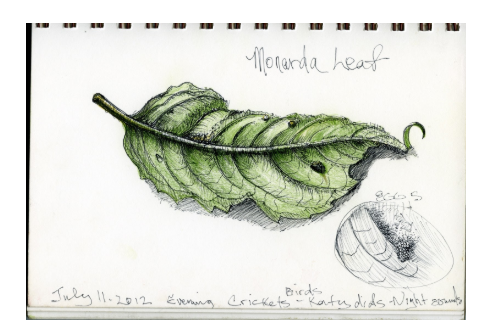 Monarda Leaf
EGGS
Birds
July 11-2012 Evening Crickets - Katydids - Night sounds